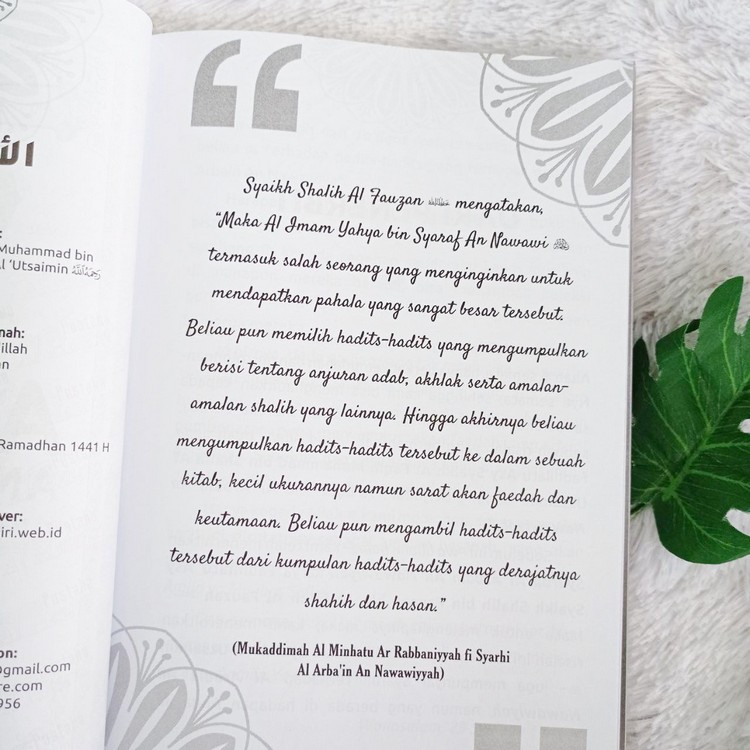 الأ
:
Muhammad bin
Al 'Utsaimin رحمه الله
nah:
illah
an
Ramadhan 1441 H
ver:
iri.web.id
on:
@gmail.com
re.com
956
Syaikh Shalih Al Fauzan حفظه الله mengatakan,
“Maka Al Imam Yahya bin Syaraf An Nawawi
termasuk salah seorang yang menginginkan untuk
mendapatkan pahala yang sangat besar tersebut.
Beliau pun memilih hadits-hadits yang mengumpulkan
berisi tentang anjuran adab, akhlak serta amalan-
amalan shalih yang lainnya. Hingga akhirnya beliau
mengumpulkan hadits-hadits tersebut ke dalam sebuah
kitab, kecil ukurannya namun sarat akan faedah dan
keutamaan. Beliau pun mengambil hadits-hadits
tersebut dari kumpulan hadits-hadits yang derajatnya
shahih dan hasan.”
(Mukaddimah Al Minhatu Ar Rabbaniyyah fi Syarhi
Al Arba'in An Nawawiyyah)